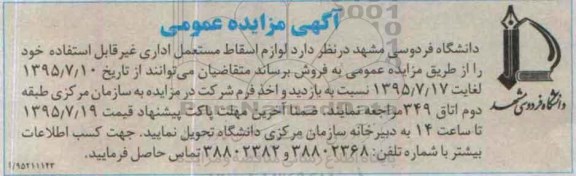 آگهی مزایده عمومی
دانشگاه فردوسی مشهد در نظر دارد لوازم اسقاط مستعمل اداری غیرقابل استفاده خود
را از طریق مزایده عمومی به فروش برساند متقاضیان می‌توانند از تاریخ ۱۳۹۵/۷/۱۰
لغایت ۱۳۹۵/۷/۱۷ نسبت به بازدید و اخذ فرم شرکت در مزایده به سازمان مرکزی طبقه
دوم اتاق ۳۴۹ مراجعه نمایند، ضمنا آخرین مهلت پاکت پیشنهاد قیمت ۱۳۹۵/۷/۱۹
تا ساعت ۱۴ به دبیرخانه سازمان مرکزی دانشگاه تحویل نمایید. جهت کسب اطلاعات
بیشتر با شماره تلفن: ۳۸۸۰۲۳۶۸ و ۳۸۸۰۲۳۸۲ تماس حاصل فرمایید.
دانشگاه فردوسی مشهد
۹۵۲۱۱۱۲۳/ا